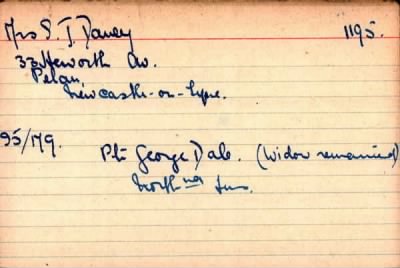 Mrs S. J. Davey 1195.
33 Heworth Av.
Pelaw.
Newcastle-on-Tyne.
95/179. Pte George Dale. (Widow remarried)
North'nd Fus.